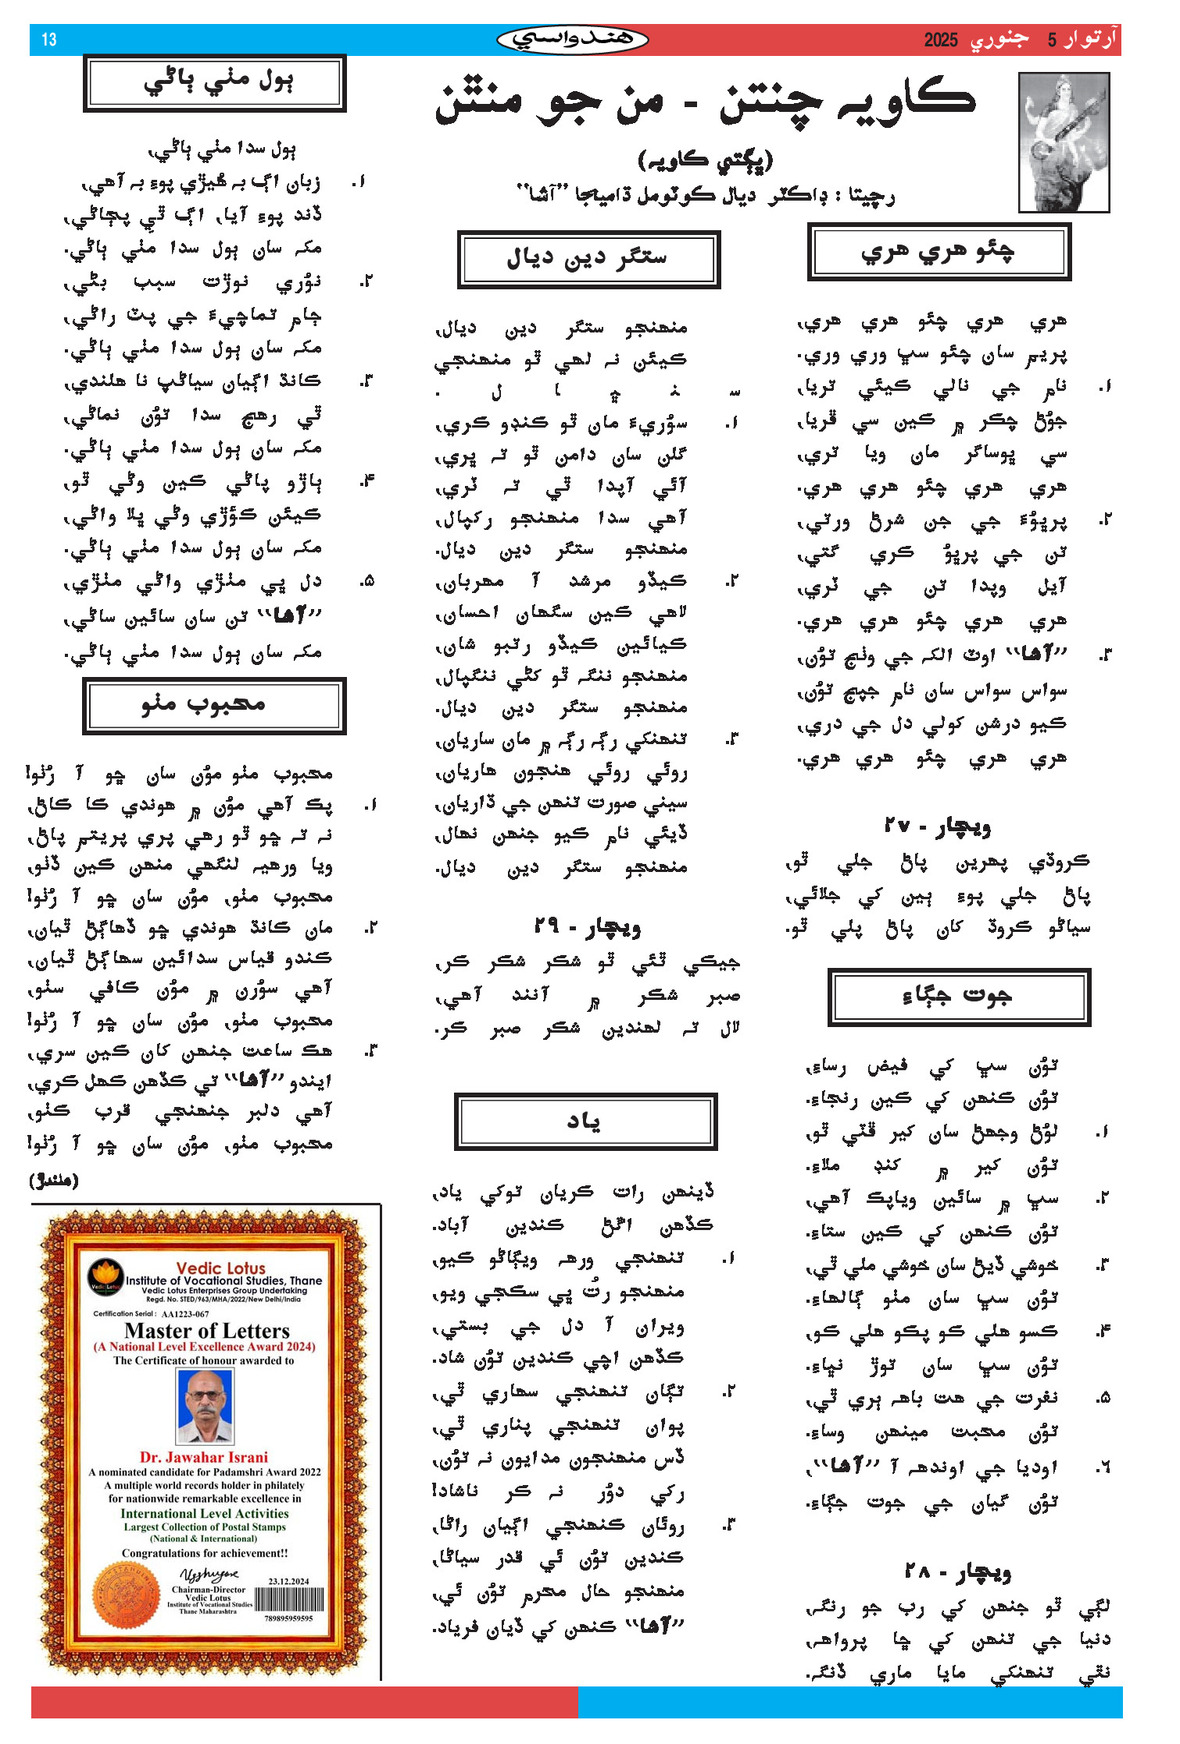 آرتوار 5 جنوري 2025
هندواسي
13
ڪاويہ چنتن - من جو منٿن
(ڀڳتي ڪاويہ)
رچيتا : ڊاڪٽر ديال ڪوٽومل ڌاميجا ”آشا“
چئو هري هري
هري هري چئو هري هري،
پريم سان چئو سڀ وري وري.
۱. نام جي نالي ڪيئي تريا،
جوُڻ چڪر ۾ ڪين سي ڦريا،
سي ڀوساگر مان ويا تري،
هري هري چئو هري هري.
۲. پرڀوُءَ جي جن شرڻ ورتي،
تن جي پرڀوُ ڪري گتي،
آيل وپدا تن جي ٽري،
هري هري چئو هري هري.
۳. ”آشا“ اوٽ الکہ جي وٺج توُن،
سواس سواس سان نام جپج توُن،
ڪيو درشن کولي دل جي دري،
هري هري چئو هري هري.
ويچار - ۲۷
ڪروڌي پهرين پاڻ جلي ٿو،
پاڻ جلي پوءِ ٻين کي جلائي،
سياڻو ڪروڌ کان پاڻ پلي ٿو.
جوت جڳاءِ
توُن سڀ کي فيض رساءِ،
توُن ڪنهن کي ڪين رنجاءِ.
۱. لوُڻ وجهڻ سان کير ڦٽي ٿو،
توُن کير ۾ کنڊ ملاءِ.
۲. سڀ ۾ سائين وياپڪ آهي،
توُن ڪنهن کي ڪين ستاءِ.
۳. خوشي ڏيڻ سان خوشي ملي ٿي،
توُن سڀ سان مٺو ڳالهاءِ.
۴. ڪسو هلي ڪو پڪو هلي ڪو،
توُن سڀ سان توڙ نڀاءِ.
۵. نفرت جي هت باهہ ٻري ٿي،
توُن محبت مينهن وساءِ.
۶. اوديا جي اونڌهہ آ ”آشا“،
توُن گيان جي جوت جڳاءِ.
ويچار - ۲۸
لڳي ٿو جنهن کي رب جو رنگہ،
دنيا جي تنهن کي ڇا پرواهہ،
نٿي تنهنکي مايا ماري ڏنگہ.
ستگر دين ديال
منهنجو ستگر دين ديال،
ڪيئن نہ لهي ٿو منهنجي
س نڀال.
۱. سوُريءَ مان ٿو ڪنڊو ڪري،
گلن سان دامن ٿو تہ ڀري،
آئي آپدا ٿي تہ ٽري،
آهي سدا منهنجو رکپال،
منهنجو ستگر دين ديال.
۲. ڪيڏو مرشد آ مهربان،
لاهي ڪين سگهان احسان،
ڪيائين ڪيڏو رتبو شان،
منهنجو ننگہ ٿو کڻي ننگپال،
منهنجو ستگر دين ديال.
۳. تنهنکي رڳہ رڳہ ۾ مان ساريان،
روئي روئي هنجون هاريان،
سيني صورت تنهن جي ڌاريان،
ڏيئي نام ڪيو جنهن نهال،
منهنجو ستگر دين ديال.
ويچار - ۲۹
جيڪي ٿئي ٿو شڪر شڪر ڪر،
صبر شڪر ۾ آنند آهي،
لال تہ لهندين شڪر صبر ڪر.
ياد
ڏينهن رات ڪريان توکي ياد،
ڪڏهن اڱڻ ڪندين آباد.
۱. تنهنجي ورهہ ويڳاڻو ڪيو،
منهنجو رتُ پي سڪجي ويو،
ويران آ دل جي بستي،
ڪڏهن اچي ڪندين توُن شاد.
۲. تڳان تنهنجي سهاري ٿي،
پوان تنهنجي پناري ٿي،
ڏس منهنجون مدايون نہ توُن،
رکي دوُر نہ ڪر ناشاد!
۳. روئان ڪنهنجي اڳيان راڻا،
ڪندين توُن ئي قدر سياڻا،
منهنجو حال محرم توُن ئي،
”آشا“ ڪنهن کي ڏيان فرياد.
ٻول مٺي ٻاڻي
ٻول سدا مٺي ٻاڻي،
۱. زبان اڳ بہ هُيڙي پوءِ بہ آهي،
ڏند پوءِ آيا، اڳ ٿي پڄاڻي،
مکہ سان ٻول سدا مٺي ٻاڻي.
۲. نوُري نوڙت سبب بڻي،
ڄام تماچيءَ جي پٽ راڻي،
مکہ سان ٻول سدا مٺي ٻاڻي.
۳. ڪانڌ اڳيان سياڻپ نا هلندي،
ٿي رهج سدا توُن نماڻي،
مکہ سان ٻول سدا مٺي ٻاڻي.
۴. ٻاڙو پاڻي ڪين وڻي ٿو،
ڪيئن ڪوُڙي وڻي ڀلا واڻي،
مکہ سان ٻول سدا مٺي ٻاڻي.
۵. دل ڀي مٺڙي واڻي مٺڙي،
”آشا“ تن سان سائين ساڻي،
مکہ سان ٻول سدا مٺي ٻاڻي.
محبوب مٺو
محبوب مٺو موُن سان ڇو آ رُٺو!
۱. پڪ آهي موُن ۾ هوندي ڪا ڪاڻ،
نہ تہ ڇو ٿو رهي پري پريتم پاڻ،
ويا ورهيہ لنگهي منهن ڪين ڏٺو،
محبوب مٺو، موُن سان ڇو آ رُٺو!
۲. مان ڪانڌ هوندي ڇو ڏهاڳڻ ٿيان،
ڪندو قياس سدائين سهاڳڻ ٿيان،
آهي سوُرن ۾ موُن ڪافي سٺو،
محبوب مٺو، موُن سان ڇو آ رُٺو!
۳. هڪ ساعت جنهن کان ڪين سري،
ايندو ”آشا“ تي ڪڏهن ڪهل ڪري،
آهي دلبر جنهنجي قرب ڪٺو،
محبوب مٺو، موُن سان ڇو آ رُٺو!
(هلندڙ)
Vedic Lotus
Institute of Vocational Studies, Thane
Vedic Lotus Enterprises Group Undertaking
Regd. No. STED/963/MHA/2022/New Delhi/India
Certification Serial : AA1223-067
Master of Letters
(A National Level Excellence Award 2024)
The Certificate of honour awarded to
Dr. Jawahar Israni
A nominated candidate for Padamshri Award 2022
A multiple world records holder in philately
for nationwide remarkable excellence in
International Level Activities
Largest Collection of Postal Stamps
(National & International)
Congratulations for achievement!!
23.12.2024
Chairman-Director
Vedic Lotus
Institute of Vocational Studies
Thane Maharashtra
789895959595